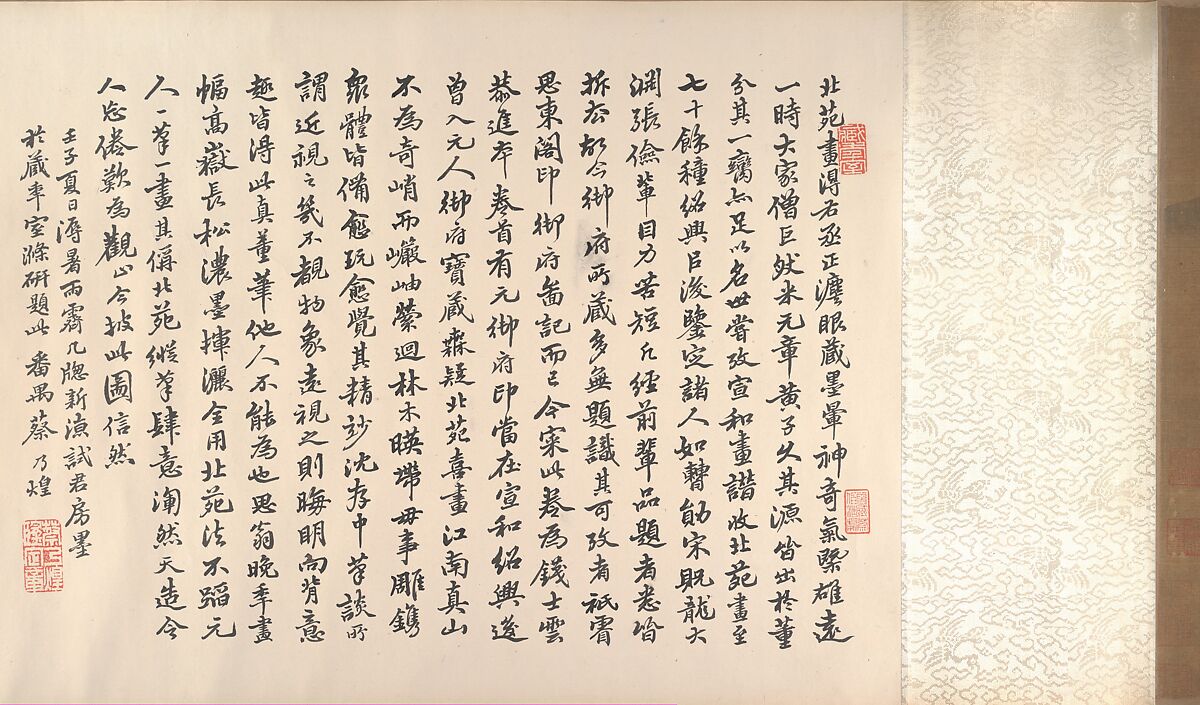 北苑畫得右丞正灋眼藏墨暈神奇氣槩雄遠
一時大家僧巨然米元章黃子久其源皆出於董
分其一臠亦足以名世嘗攷宣和畫譜收北苑畫至
七十餘種紹興巨浚鑒定諸人如曹勛宋貺龍大
淵張儉輩目力苦短凡經前輩品題者悉皆
拆去故今御府所藏多無題識其可攷者祇睿
思東閣印御府圖記而已今案此卷為錢士雲
恭進本卷首有元御府印當在宣和紹興後
曾入元人御府寶藏無疑北苑喜畫江南真山
不為奇峭而巖岫縈迴林木暎帶毋事雕鎸
眾體皆備愈玩愈覺其精妙沈存中筆談所
謂近視之幾不覩物象遠視之則晦明向背意
趣皆得此真董筆他人不能為也思翁晚年畫
幅高嶽長松濃墨揮灑全用北苑法不蹈元
人一筆一畫其偁北苑縱筆肆意瀾然天造令
人忘倦歎為觀止今披此圖信然
壬子夏日溽暑雨霽几牕新涼試君房墨
於藏年室滌研題此 番禺蔡乃煌